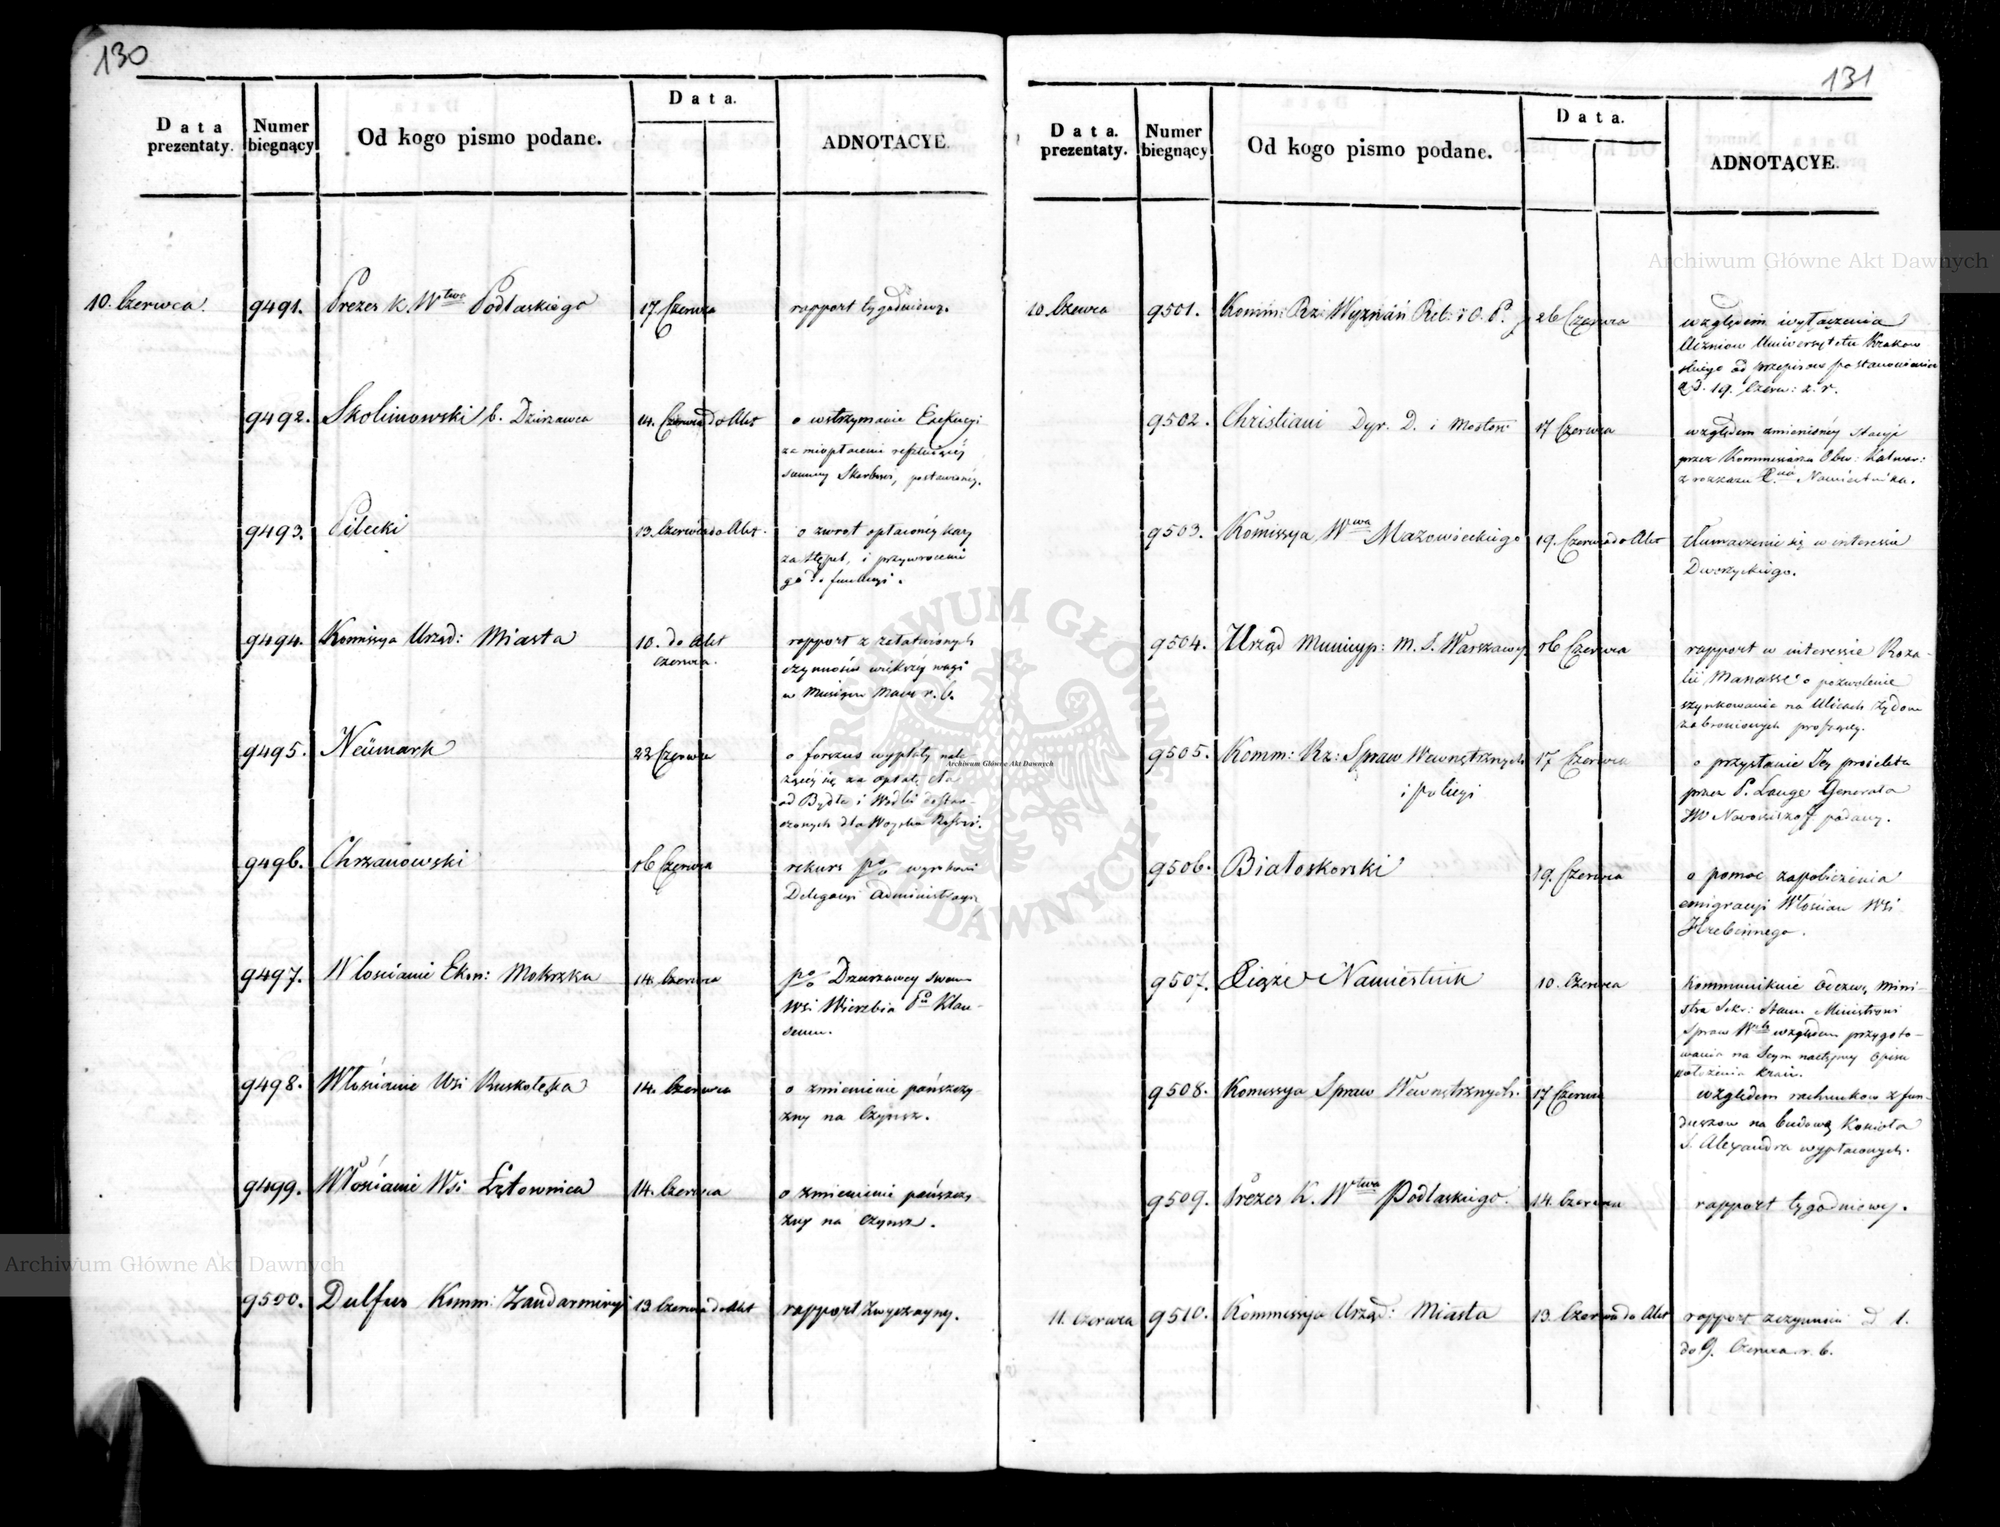 130
Data
prezentaty.
Numer
biegnący
Od kogo pismo podane.
Data.
ADNOTACYE.
10. Czerwca.
9491.
Prezes K. Wtwa Podlaskiego
17 Czerwca
rapport tygodniowy.
9492.
Skolimowski b. Dzierżawca
14. Czerwca do Akt
o wstrzymanie Exekucyi
za nieopłacenie
summy Skarbowi,
9493.
Pilecki
13. Czerwca do Akt.
o zwrot opłaconéy kary
za stępel, i przywrócenie
go do funkcyi.
9494.
Komissya Urząd: Miasta
10. do Akt
Czerwca.
rapport z załatwionych
czynności większéy wagi
w Miesiącu Maiu r. b.
9495.
Neümark
22 Czerwca
o forszus wypłaty
za opłatę
od Bydła i Wódki
dla Woyska
9496.
Chrzanowski
16 Czerwca
rekurs pko wyrokowi
Delegacyi Administracyi
9497.
Włościanie Ekon: Mokrzka
14. Czerwca
pko Dzierzawcy
Wsi Wierzbia Pu Klau-
senu.
9498.
Włościanie Wsi Ruskołęka
14. Czerwca
o zmienienie pańszczy-
zny na Czynsz.
9499.
Włościanie Wsi Łętownica
14. Czerwca
o zmienienie pańszczy
zny na czynsz.
9500.
Dulfus Komm: Żandarmeryi
13 Czerwca do Akt
rapport Zwyczayny.
131
Data.
prezentaty.
Numer
biegnący
Od kogo pismo podane.
Data.
ADNOTACYE.
10. Czerwca
9501.
Komm: Rz: Wyznań Rel: i O. P.
26 Czerwca
względem wyłączenia
Uczniow Uniwersytetu Krakow
skiego od przepisow postanowienia
z d. 19. Czerw: z. r.
9502.
Christiani Dyr. D. i Mostow
17 Czerwca
względem zmienionéy stacyi
przez Kommissarza Obw: Kalwar:
z rozkazu Namiestnika.
9503.
Komissya Wwa Mazowieckiego
19. Czerwca do Akt
tłumaczenie się w interessie
Dworzyckiego.
9504.
Urząd Municyp: M. S. Warszawy
16 Czerwca
rapport w interessie Roza-
lii Manasse o pozwolenie
szynkowania na Ulicach Żydom
zabronionych proszący.
9505.
Komm: Rz: Spraw Wewnętrznych
i Policyi
17 Czerwca
o przysłanie Jey projektu
przez P. Lange Generała
JW Nowosilzoff podany.
9506.
Białoskorski
19. Czerwca
o pomoc zapobieżenia
emigracyi Włościan Wsi
Hrebennego.
9507.
Xiąże Namiestnik
10. Czerwca
Kommunikuie Odezwę Mini-
stra Sekr: Stanu Ministrowi
Spraw Wnych względem przygoto-
wania na Seym następny opisu
położenia kraiu.
9508.
Komissya Spraw Wewnętrznych.
17 Czerwca
względem rachunkow z fun-
duszow na budowę Kościoła
S. Alexandra wypłaconych.
9509.
Prezes K. Wtwa Podlaskiego.
14. Czerwca
rapport tygodniowy.
11. Czerwca
9510.
Kommissya Urząd: Miasta
13. Czerwca do Akt
rapport z czynności od 1.
do 9. Czerwca r. b.
Archiwum Główne Akt Dawnych
Archiwum Główne Akt Dawnych
Archiwum Główne Akt Dawnych
ARCHIWUM GŁÓWNE AKT DAWNYCH